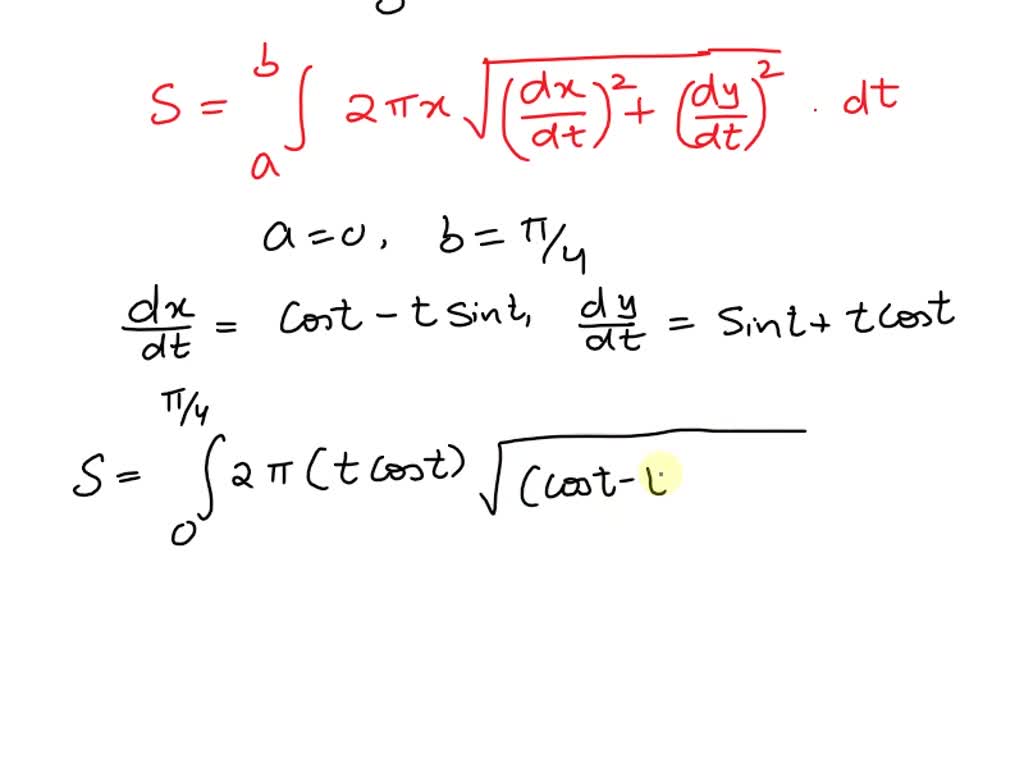 S = ∫_a^b 2πx √((dx/dt)² + (dy/dt)²) . dt
a = 0, b = π/4
dx/dt = cost - t sint, dy/dt = sint + t cost
S = ∫_0^{π/4} 2π (t cost) √(cost - t